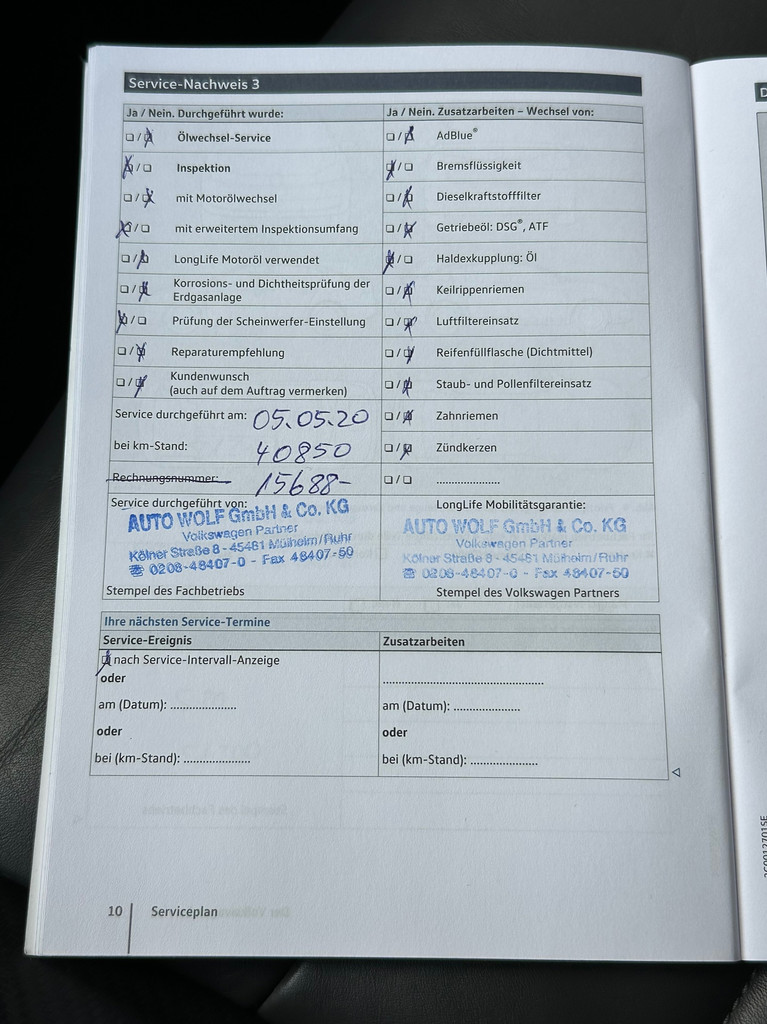 Service-Nachweis 3
Ja / Nein. Durchgeführt wurde:
Ölwechsel-Service
Inspektion
mit Motorölwechsel
mit erweitertem Inspektionsumfang
LongLife Motoröl verwendet
Korrosions- und Dichtheitsprüfung der
Erdgasanlage
Prüfung der Scheinwerfer-Einstellung
Reparaturempfehlung
Kundenwunsch
(auch auf dem Auftrag vermerken)
Service durchgeführt am: 05.05.20
bei km-Stand: 40850
Rechnungsnummer: 15688-
Service durchgeführt von:
AUTO WOLF GmbH & Co. KG
Volkswagen Partner
Kölner Straße 8 - 45481 Mülheim/Ruhr
☎ 0208-48407-0 - Fax 48407-50
Stempel des Fachbetriebs
Ja / Nein. Zusatzarbeiten – Wechsel von:
AdBlue®
Bremsflüssigkeit
Dieselkraftstofffilter
Getriebeöl: DSG®, ATF
Haldexkupplung: Öl
Keilrippenriemen
Luftfiltereinsatz
Reifenfüllflasche (Dichtmittel)
Staub- und Pollenfiltereinsatz
Zahnriemen
Zündkerzen
.....................
LongLife Mobilitätsgarantie:
AUTO WOLF GmbH & Co. KG
Volkswagen Partner
Kölner Straße 8 - 45481 Mülheim/Ruhr
☎ 0208-48407-0 - Fax 48407-50
Stempel des Volkswagen Partners
Ihre nächsten Service-Termine
Service-Ereignis
nach Service-Intervall-Anzeige
oder
am (Datum): .....................
oder
bei (km-Stand): .....................
Zusatzarbeiten
..................................................
am (Datum): .....................
oder
bei (km-Stand): .....................
10 Serviceplan